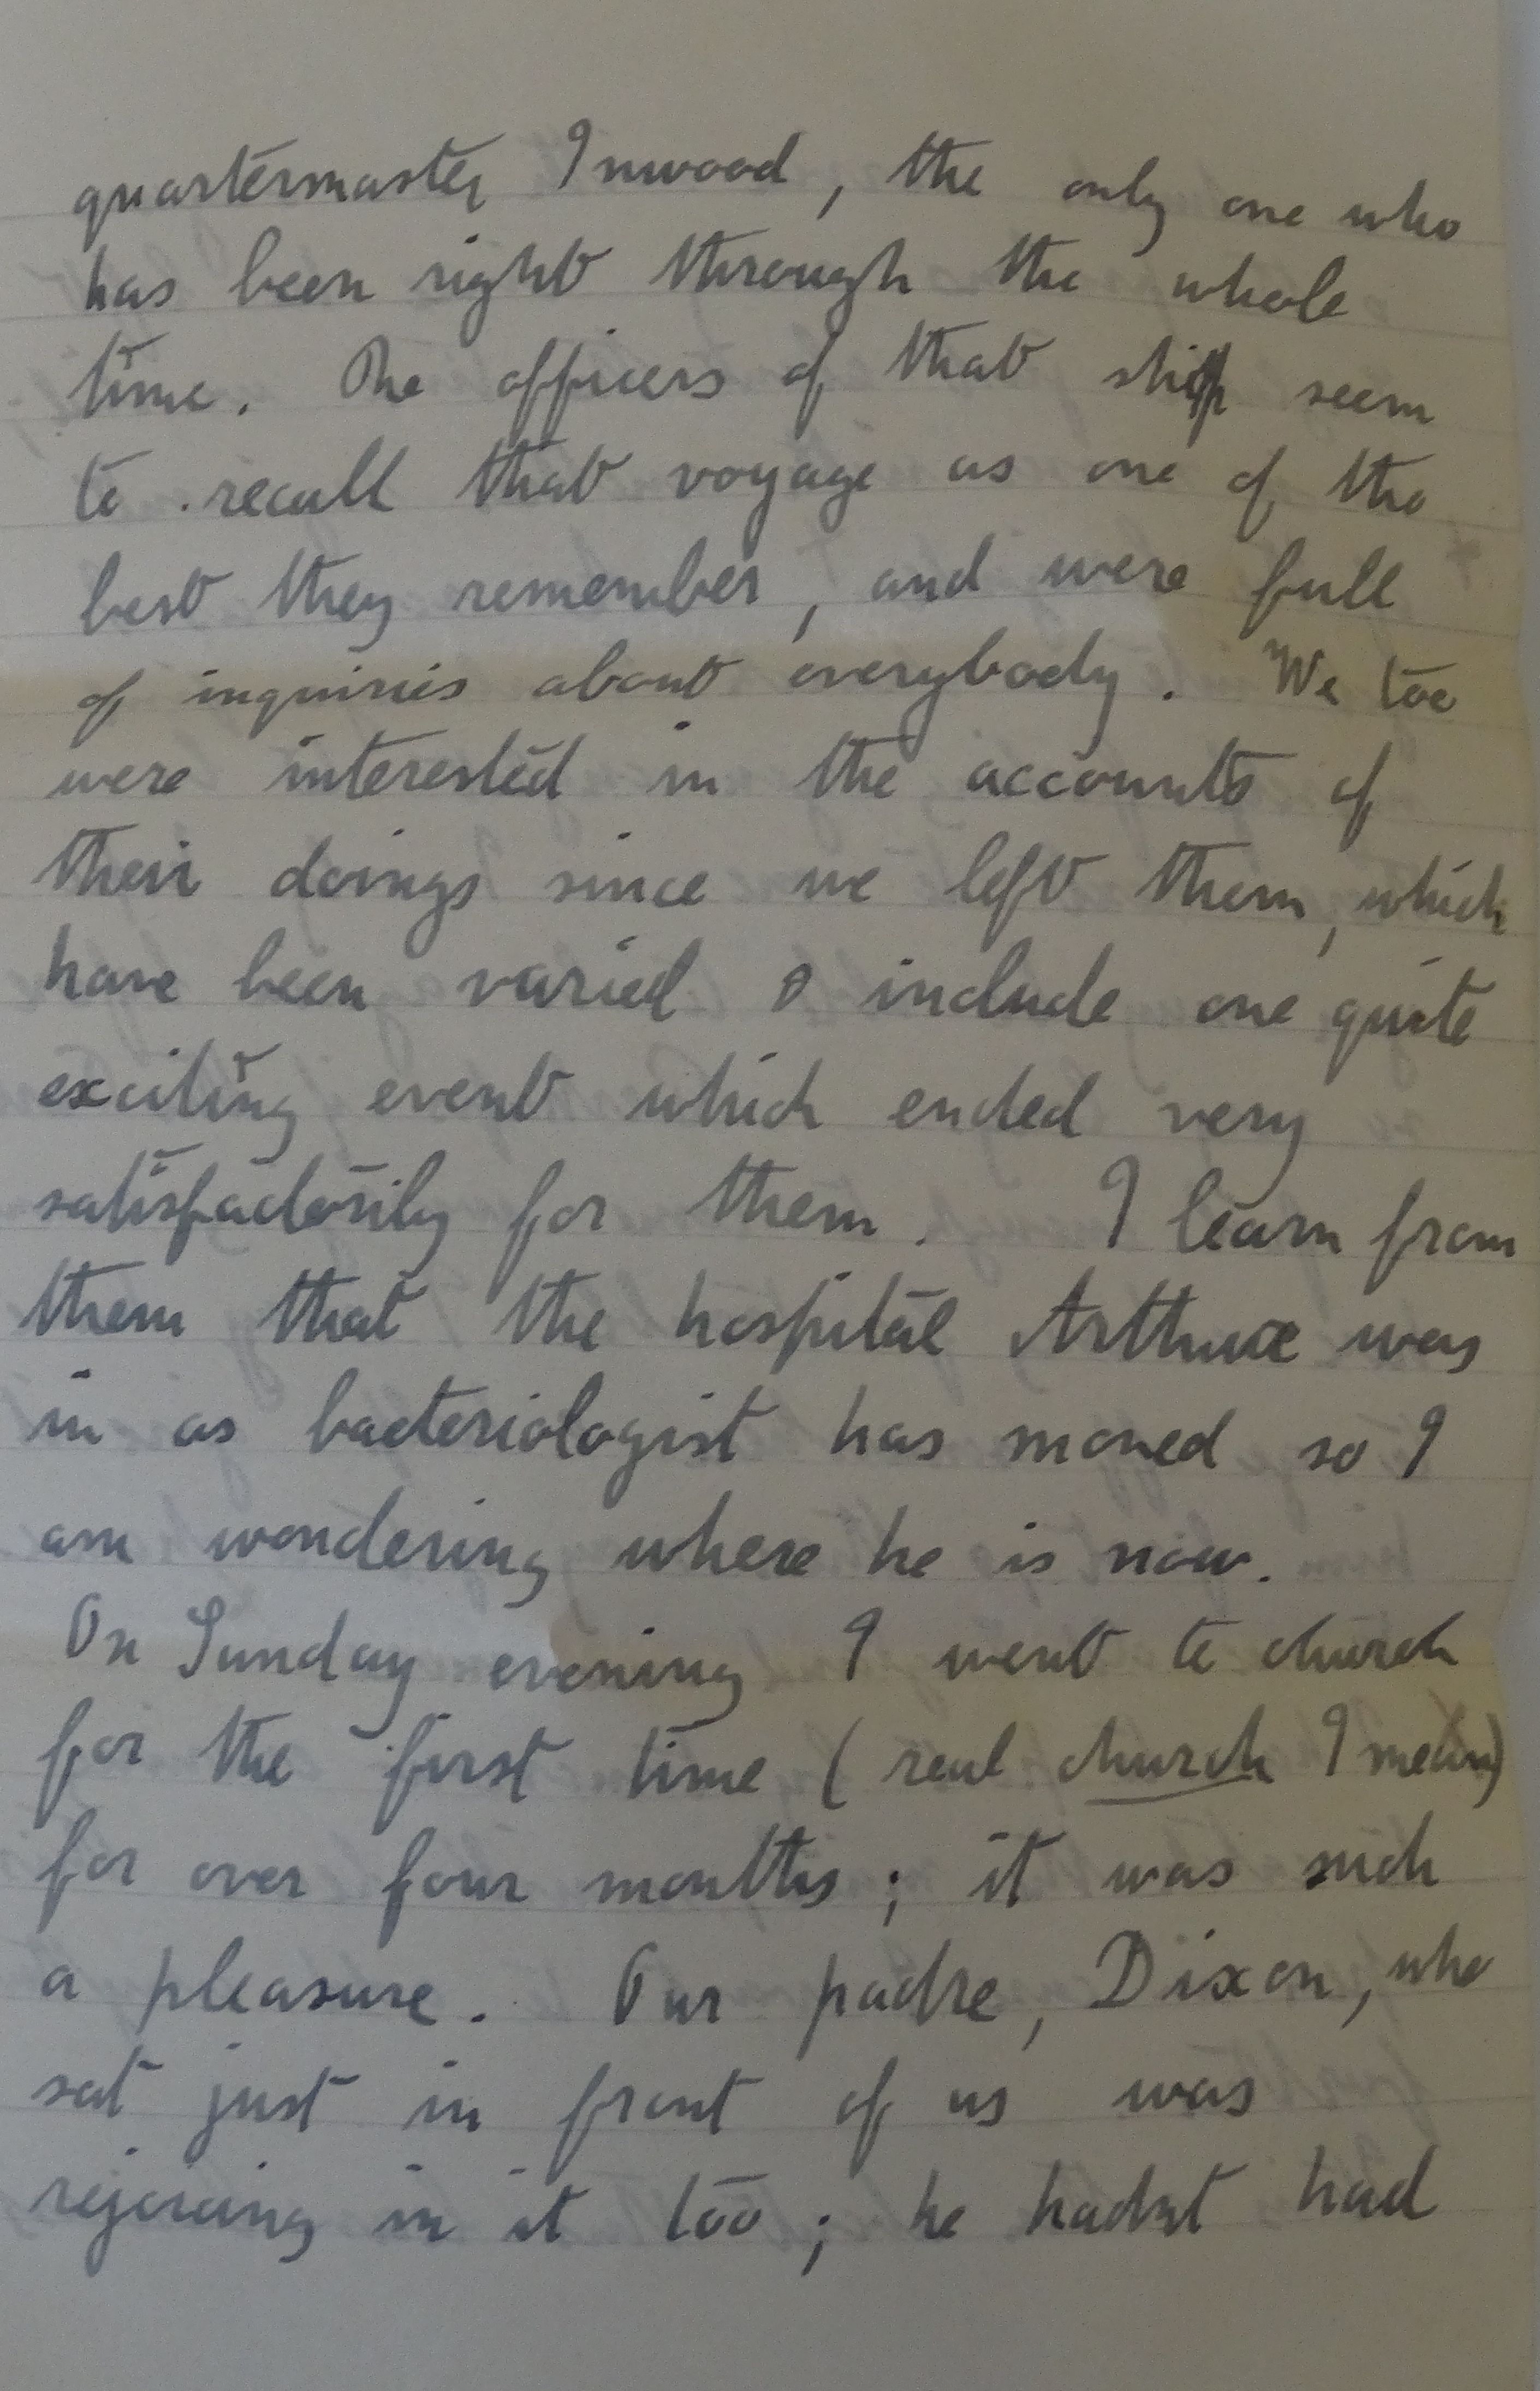 quartermaster Inwood, the only one who
has been right through the whole
time. The officers of that ship seem
to recall that voyage as one of the
best they remember, and were full
of inquiries about everybody. We too
were interested in the accounts of
their doings since we left them, which
have been varied & include one quite
exciting event which ended very
satisfactorily for them. I learn from
them that the hospital Arthur was
in as bacteriologist has moved so I
am wondering where he is now.
On Sunday evening I went to church
for the first time (real church I mean)
for over four months; it was such
a pleasure. Our padre, Dixon, who
sat just in front of us was
rejoicing in it too; he hadnt had